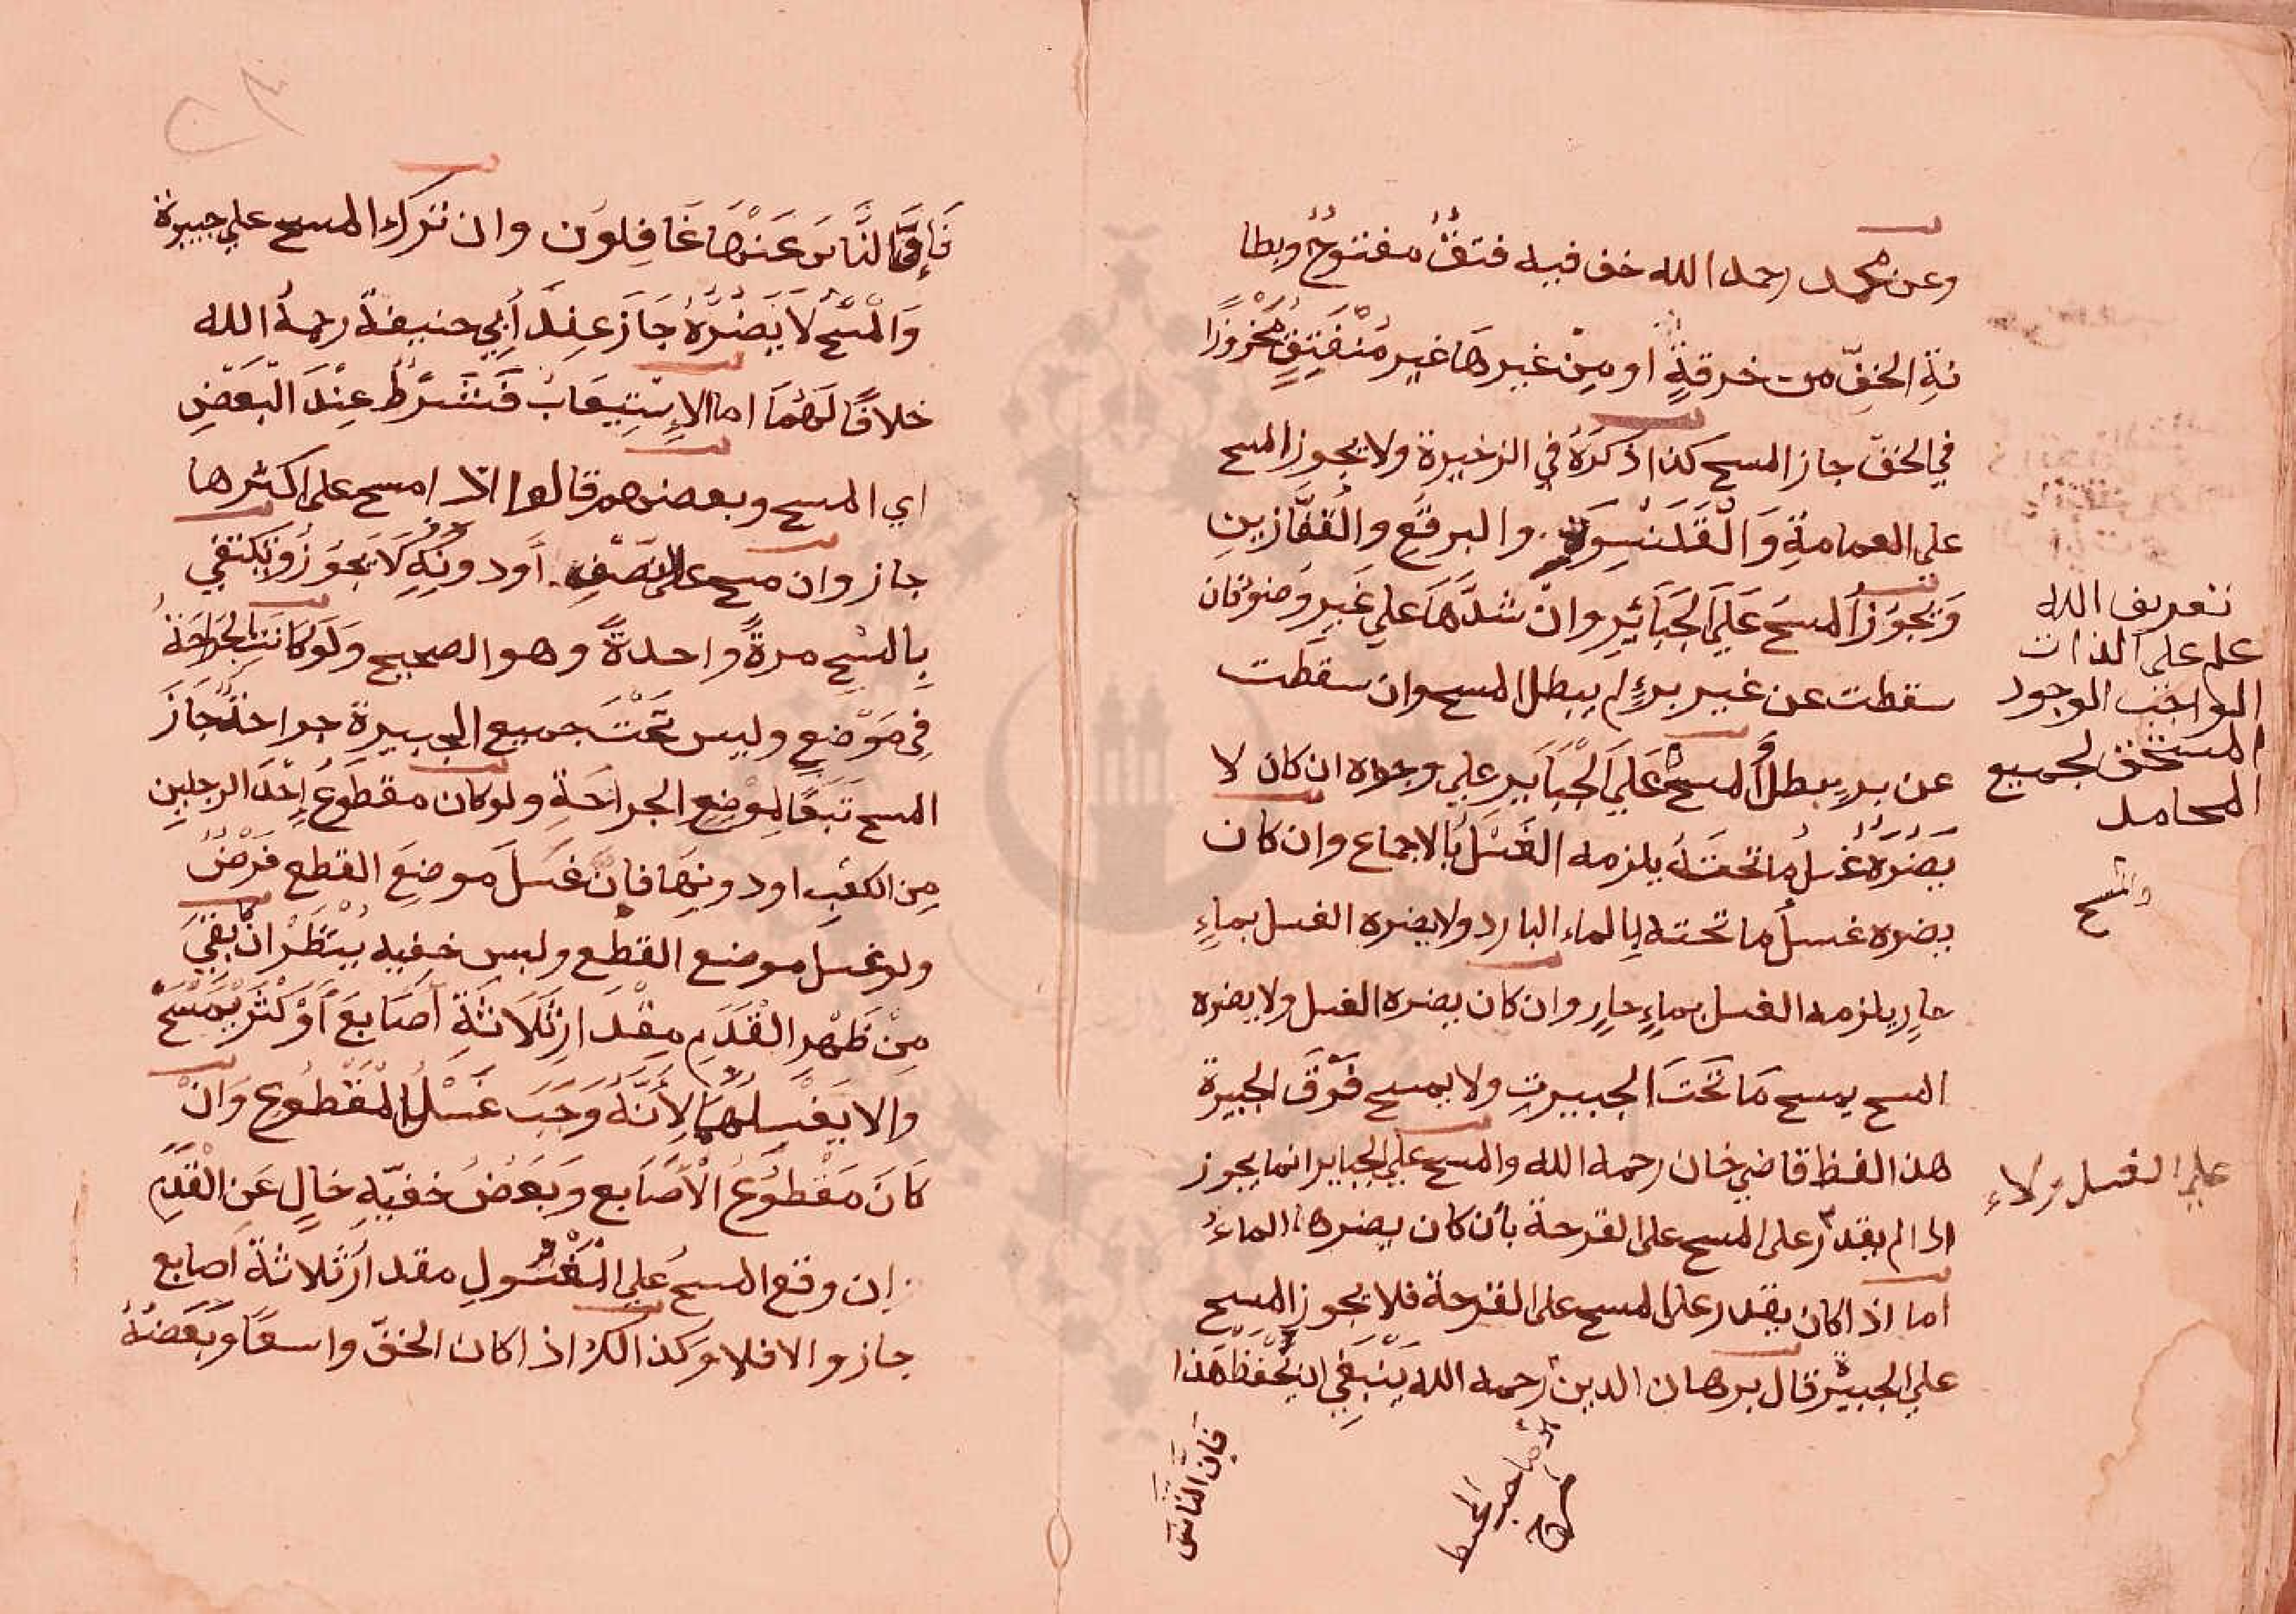 وعن محمد رحمه الله خف فيه فتق مفتوح وبطا
نة الخف من خرقة او من غيرها غير منفتق مخروزا
في الخف جاز المسح كذا ذكره في الزخيرة ولا يجوز المسح
على العمامة والقلنسوة والبرقع والقفازين
ويجوز المسح على الجبائر وان شدها على غير وضوء فان
سقطت عن غير برء لم يبطل المسح وان سقطت
عن برء يبطل المسح على الجبائر على وجوه ان كان لا
يضره غسل ما تحته يلزمه الغسل بالاجماع وان كان
يضره غسل ما تحته بالماء البارد ولا يضره الغسل بماء
حار يلزمه الغسل بماء حار وان كان يضره الغسل ولا يضره
المسح يمسح ما تحت الجبيرت ولا يمسح فوق الجبيرة
هذا لفظ قاضي خان رحمه الله والمسح على الجباير انما يجوز
اذا لم يقدر على المسح على القرحة بأن كان يضرها الماء
اما اذا كان يقدر على المسح على القرحة فلا يجوز المسح
على الجبيرة قال برهان الدين رحمه الله ينبغي ان يحفظ هذا
فإن الناس
تعريف الله
علم على الذات
الواجب الوجود
المستحق لجميع
المحامد
والمسح
على الغسل
فإن الناس عنها غافلون وان ترك المسح على جبيرة
والمسح لا يضره جاز عند أبي حنيفة رحمه الله
خلافا لهما اما الإستيعاب فشرط عند البعض
اي المسح وبعضهم قالوا اذا امسح على اكثرها
جاز وان مسح على النصف أو دونه لا يجوز ويكتفي
بالمسح مرة واحدة وهو الصحيح ولو كانت الجراحة
في موضع وليس تحت جميع الجبيرة جراحة جاز
المسح تبعا لموضع الجراحة ولو كان مقطوع إحد الرجلين
من الكعب او دونها فإن غسل موضع القطع فرض
ولو غسل موضع القطع ولبس خفيه ينظر ان بقي
من ظهر القدم مقدار ثلاثة أصابع أو كثر يمسح
والا يغسلهما لأنه وجب غسل المقطوع وان
كان مقطوع الأصابع وبعض خفيه خال عن القدم
إن وقع المسح على المغسول مقدار ثلاثة أصابع
جاز والا فلا وكذالك اذا كان الخف واسعا وبعضه